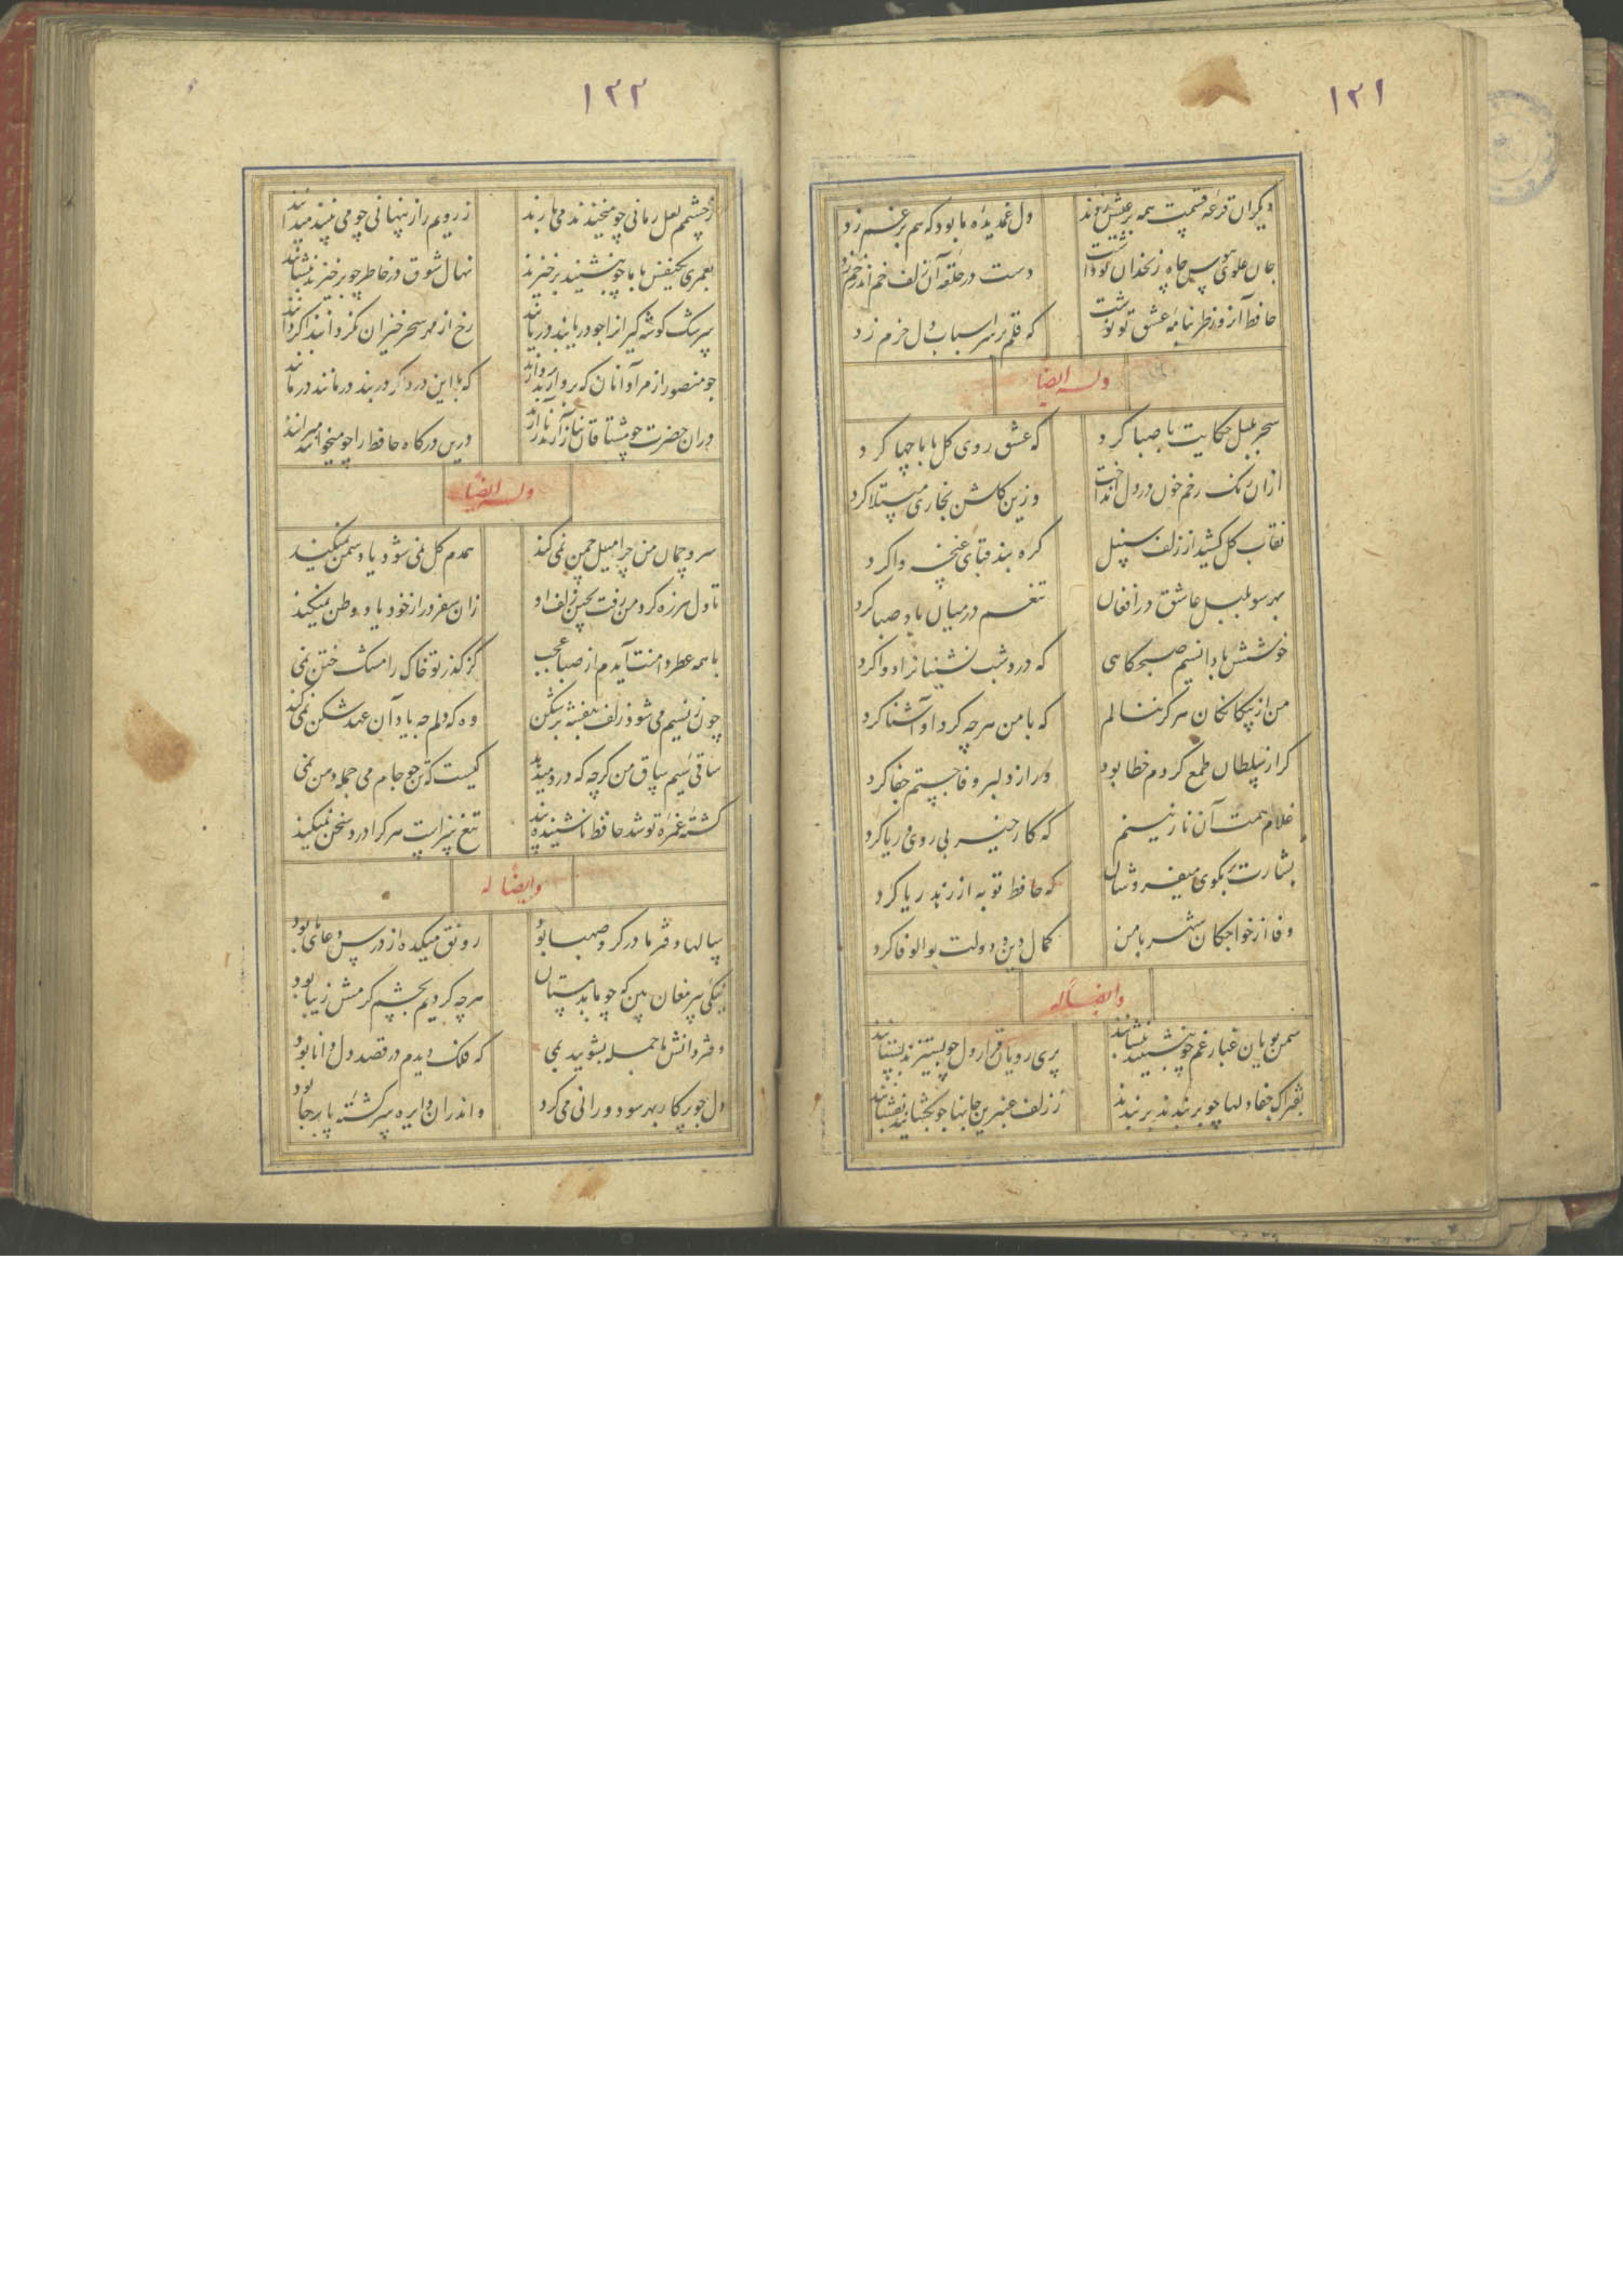 ۱۲۱
دیکران قرعه قسمت همه بر عیش زدند ول غمدیده ما بود که هم بر غم زد
جان علوی هوس چاه زنخدان تو داشت دست در حلقه آن زلف خم اندر خم زد
حافظ آن روز طربنامه عشق تو نوشت که قلم بر سر اسباب دل خرم زد
وله ایضا
سحر بلبل حکایت با صبا کرد که عشق روی کل با ما چها کرد
ازان رنک رخم خون در دل انداخت وزین کلشن بخاری مبتلا کرد
نقاب کل کشید از زلف سنبل کره بند قبای غنچه وا کرد
بهر سو بلبل عاشق در افغان تنعم در میان باد صبا کرد
خوشش باد انسیم صبحکاهی که درد شب نشینانرا دوا کرد
من از بیکانکان هرکز ننالم که با من هرچه کرد او آشنا کرد
کر از سلطان طمع کردم خطا بود ور از دلبر وفا جستم جفا کرد
غلام همت آن نازنینم که کار خیر بی روی و ریا کرد
بشارت بر بکوی میفروشان که حافظ توبه از زهد ریا کرد
وفا از خواجکان شهر با من کمال دین و دولت بوالوفا کرد
وایضاً له
سمن بویان غبار غم چو بنشینند بنشانند پری رویان قرار دل چو بستیزند بستانند
بفتراک جفا دلها چو بر بندند بر بندند ز زلف عنبرین جانها چو بکشایند بفشانند
۱۲۲
ز چشمم لعل رمانی چو میخندند می بارند ز رویم راز پنهانی چو می بینند میدانند
بعمری یکنفس با ما چو بنشینند برخیزند نهال شوق در خاطر چو برخیزند بنشانند
سرشک کوشه کیرانرا چو دریابند دریابند رخ از مهر سحر خیزان نکردانند اکر دانند
چو منصور از مراد آنان که بردارند بردارند که با این درد اکر در بند درمانند درمانند
دران حضرت چو مشتاقان نیاز آرند ناز آرند درین درکاه حافظ را چو میخوانند میرانند
وله ایضاً
سرو چمان من چرا میل چمن نمی کند همدم کل نمی شود یاد سمن نمیکند
تا دل هرزه کرد من رفت بچین زلف او زان سفر دراز خود یاد وطن نمیکند
با همه عطر دامنت آیدم از صبا عجب کز کذر تو خاک را مشک ختن نمی
چون ز نسیم می شود زلف بنفشه پر شکن وه که دلم چه یاد آن عهد شکن نمی کند
ساقی سیم ساق من کرچه که درد میدهد کیست که تن چو جام می جمله دهن نمی
کشته غمزه تو شد حافظ ناشنیده پند تیغ سزاست هر کرا درد سخن نمیکند
وایضاً له
سالها دفتر ما در کرو صهبا بود رونق میکده از درس و دعای ما بود
نیکی پیر مغان بین که چو ما بد مستان هر چه کردیم بچشم کرمش زیبا بود
دفتر دانش ما جمله بشویید بمی که فلک دیدم در قصد دل دانا بود
دل چو پرکار بهر سو دورانی می کرد و اندران دایره سرکشته پا برجا بود